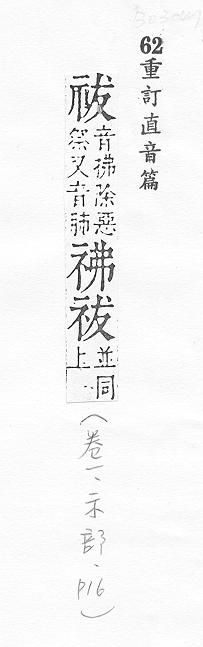 62重訂直音篇
祓
音彿除惡
祭又音肺
𥘬袚
並同
上
(卷一、示部、p16)